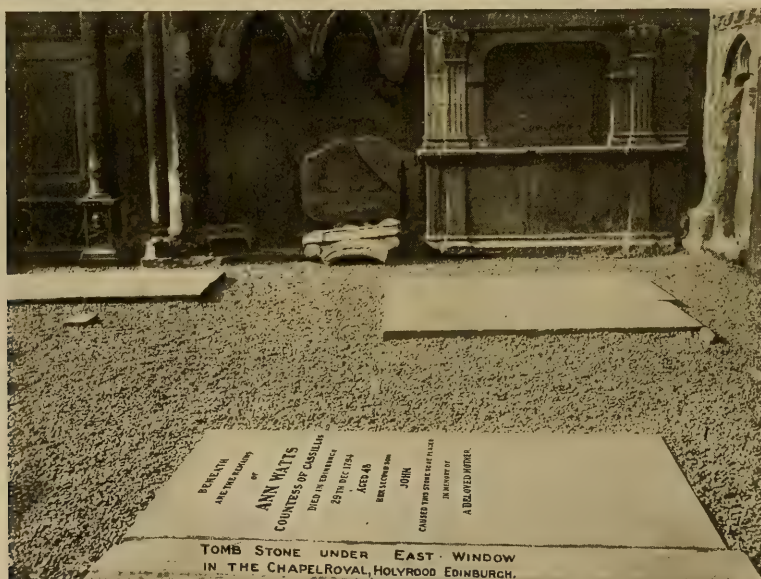 BENEATH
ARE THE REMAINS
OF
ANN WATTS
COUNTESS OF CASSILLIS
DIED IN EDINBURGH
29TH DEC 1794
AGED 48
HER SECOND SON
JOHN
CAUSED THIS STONE TO BE PLACED
IN MEMORY OF
A BELOVED MOTHER.
TOMB STONE UNDER EAST WINDOW
IN THE CHAPEL ROYAL, HOLYROOD EDINBURGH.